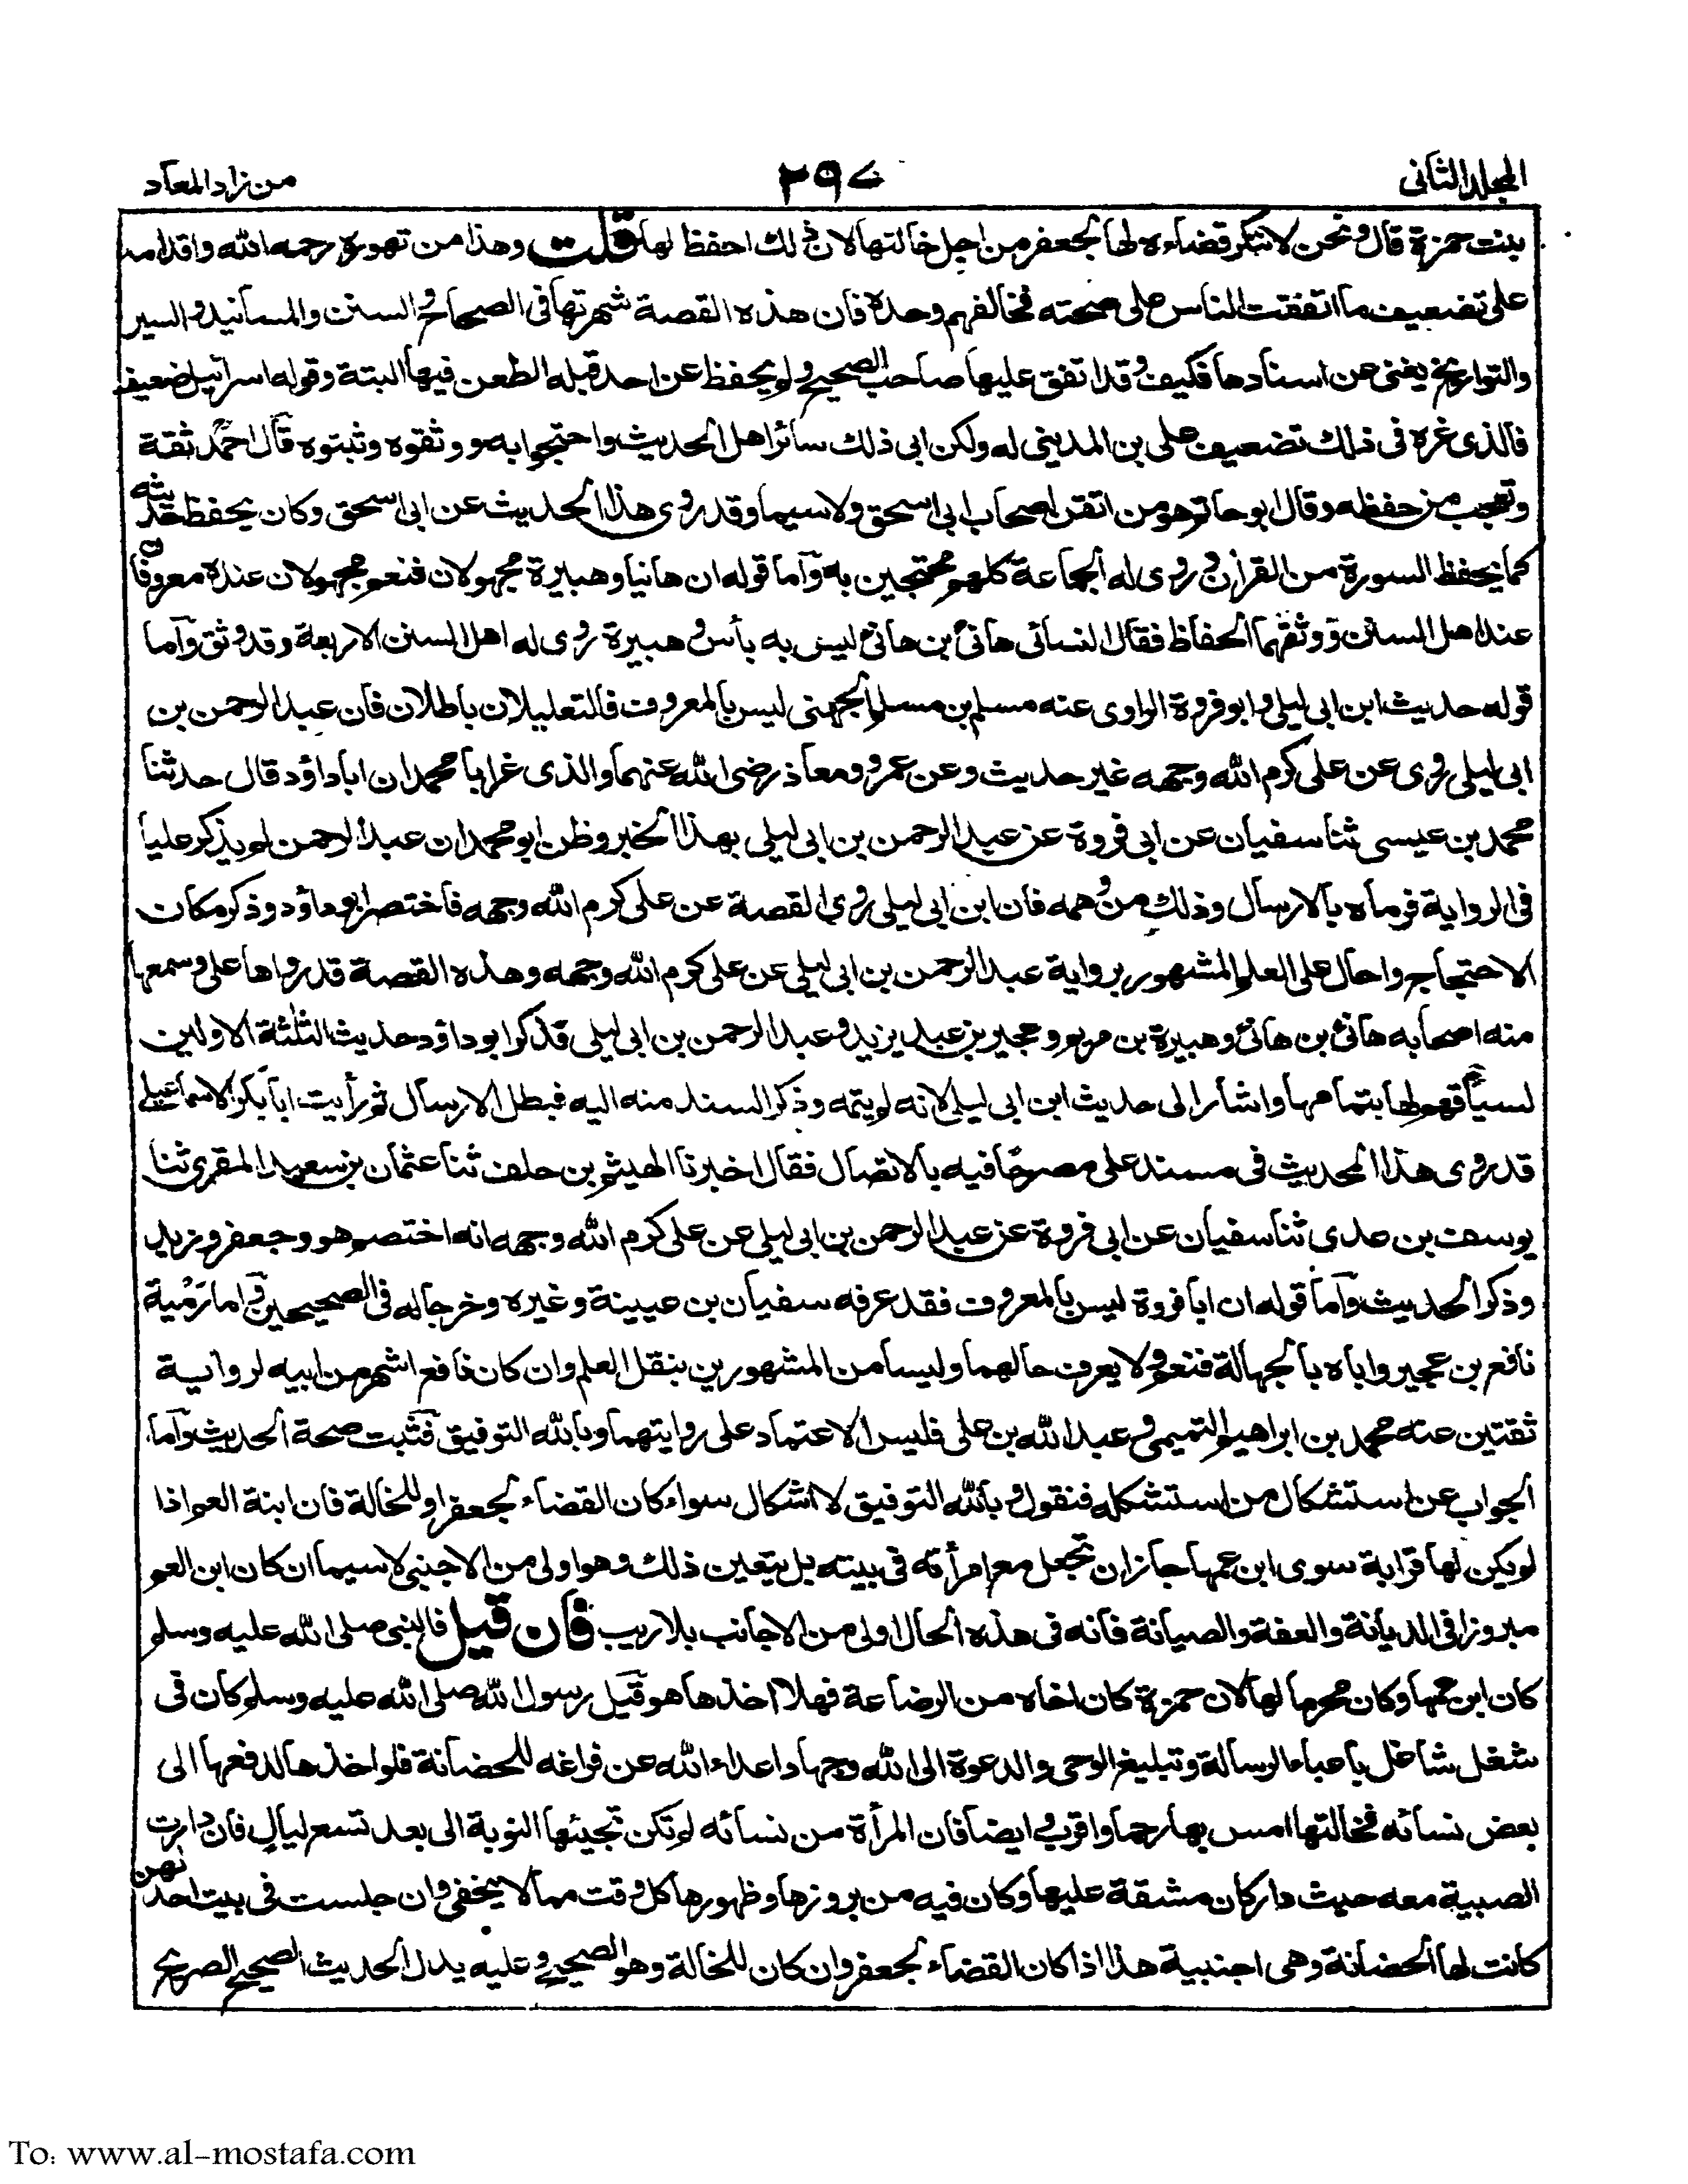 المجلد الثانى
٢٩٧
من زاد المعاد
بنت حمزة قال ونحن لا ننكر قضاءه لها لجعفر من اجل خالتها لان ذلك احفظ لها قلت وهذا من تهوره رحمه الله واقدامه
على تضعيف ما اتفقت الناس على صحته فخالفهم وحده فان هذه القصة شهرتها فى الصحاح والسنن والمسانيد والسير
والتواريخ يغنى عن اسنادها فكيف وقد اتفق عليها صاحب الصحيح ولم يحفظ عن احد قبله الطعن فيها البتة وقوله اسرائيل ضعيف
فالذى غره فى ذلك تضعيف على بن المدينى له ولكن ابى ذلك سائر اهل الحديث واحتجوا به ووثقوه وثبتوه قال احمد ثقة
وتعجب من حفظه وقال ابو حاتم هو من اتقن اصحاب ابى اسحق ولا سيما وقد روى هذا الحديث عن ابى اسحق وكان يحفظ حديثه
كما يحفظ السورة من القرأن وروى له الجماعة كلهم محتجين به وأما قوله ان هانيا وهبيرة مجهولان فنعم مجهولان عنده معروفان
عند اهل السنن ووثقهما الحفاظ فقال النسائى هانئ بن هانئ ليس به بأس وهبيرة روى له اهل السنن الاربعة وقد وثق وأما
قوله حديث ابن ابى ليلى وابو فروة الراوى عنه مسلم بن مسلم الجهنى ليس بالمعروف فالتعليلان باطلان فان عبد الرحمن بن
ابى ليلى روى عن على كرم الله وجهه غير حديث وعن عمر ومعاذ رضى الله عنهما والذى غر ابا محمد ان ابا داؤد قال حدثنا
محمد بن عيسى ثنا سفيان عن ابى فروة عن عبد الرحمن بن ابى ليلى بهذا الخبر وظن ابو محمد ان عبد الرحمن لم يذكر عليا
فى الرواية فرماه بالارسال وذلك من وهمه فان ابن ابى ليلى روى القصة عن على كرم الله وجهه فاختصر ابو داؤد وذكر مكان
الاحتجاج واحال على العلم المشهور برواية عبد الرحمن بن ابى ليلى عن على كرم الله وجهه وهذه القصة قد رواها على وسمعها
منه اصحابه هانئ بن هانئ وهبيرة بن مريم وعجير بن عبد يزيد وعبد الرحمن بن ابى ليلى قذكر ابو داؤد حديث الثلثة الاولين
لسياقهم لها بتمامها واشار الى حديث ابن ابى ليلى لانه لم يتمه وذكر السند منه اليه فبطل الارسال ثم رأيت ابا بكر الاسماعيلى
قد روى هذا الحديث فى مسند على مصرحا فيه بالاتصال فقال اخبرنا الهيثم بن حلف ثنا عثمان بن سعيد المقرى ثنا
يوسف بن عدى ثنا سفيان عن ابى فروة عن عبد الرحمن بن ابى ليلى عن على كرم الله وجهه انه اختصم هو وجعفر وزيد
وذكر الحديث وأما قوله ان ابا فروة ليس بالمعروف فقد عرفه سفيان بن عيينة وغيره وخرجا له فى الصحيحين واما رمية
نافع بن عجير واباه بالجهالة فنعم ولا يعرف حالهما وليسا من المشهورين بنقل العلم وان كان نافع اشهر من ابيه لرواية
ثقتين عنه محمد بن ابراهيم التميمى وعبد الله بن على فليس الاعتماد على روايتهما وبالله التوفيق فثبت صحة الحديث وأما
الجواب عن استشكال من استشكله فنقول وبالله التوفيق لا اشكال سواء كان القضاء لجعفر او للخالة فان ابنة العم اذا
لم يكن لها قرابة سوى ابن عمها جاز ان تجعل مع امرأته فى بيته بل يتعين ذلك وهو اولى من الاجنبى لا سيما ان كان ابن العم
مبروزا فى الديانة والعفة والصيانة فانه فى هذه الحال اولى من الاجانب بلا ريب فان قيل فالنبى صلى الله عليه وسلم
كان ابن عمها وكان محرما لها لان حمزة كان اخاه من الرضاعة فهلا اخذها هو قيل رسول الله صلى الله عليه وسلم كان فى
شغل شاغل باعباء الرسالة وتبليغ الوحى والدعوة الى الله وجهاد اعداء الله عن فراغه للحضانة فلو اخذها لدفعها الى
بعض نسائه فخالتها امس بها رحما واقرب وايضا فان المرأة من نسائه لم تكن تجيئها النوبة الى بعد تسع ليال فان دارت
الصبية معه حيث دار كان مشقة عليها وكان فيه من بروزها وظهورها كل وقت مما لا يخفى وان جلست فى بيت احدنهن
كانت لها الحضانة وهى اجنبية هذا اذا كان القضاء لجعفر وان كان للخالة وهو الصحيح وعليه يدل الحديث الصحيح الصريح
To: www.al-mostafa.com